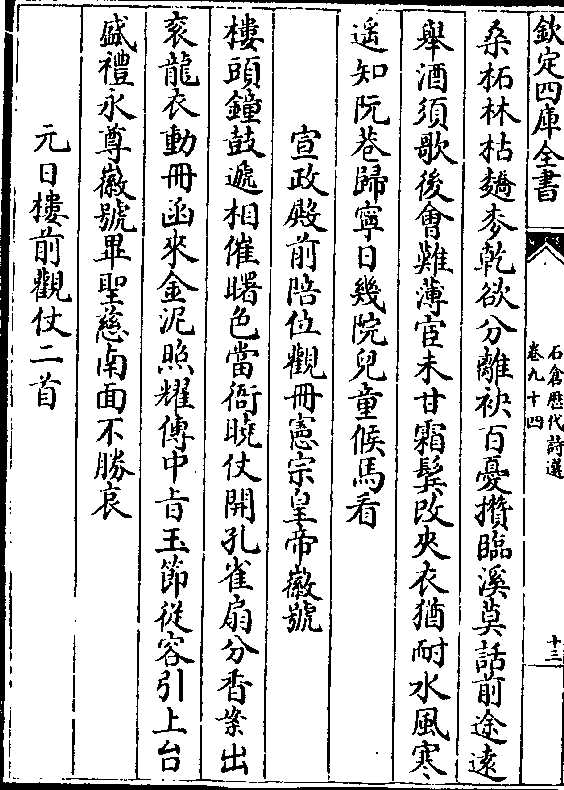 欽定四庫全書
石倉歷代詩選
卷九十四
十三
桑柘林枯蕎麥乾欲分離袂百憂攢臨溪莫話前途遠
舉酒須歌後會難薄宦未甘霜鬢改夾衣猶耐水風寒
遥知阮巷歸寧日幾院兒童候馬看
宣政殿前陪位觀冊憲宗皇帝徽號
樓頭鐘鼓遞相催曙色當衙曉仗開孔雀扇分香案出
衮龍衣動冊函來金泥照耀傳中旨玉節從容引上台
盛禮永尊徽號畢聖慈南面不勝哀
元日樓前觀仗二首